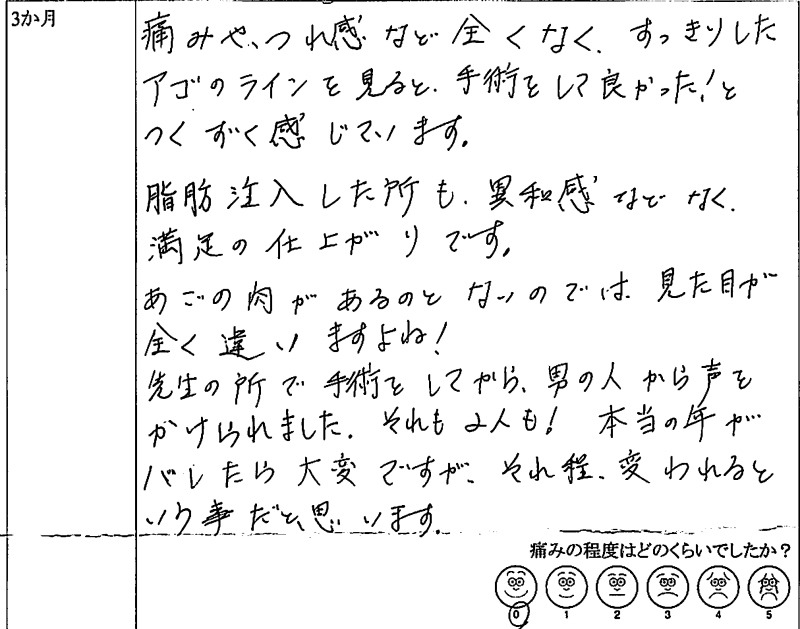 3か月
痛みや、つれ感など全くなく、すっきりした
アゴのラインを見ると、手術をして良かった!と
つくずく感じています。
脂肪注入した所も、異和感などなく、
満足の仕上がりです。
あごの肉があるのとないのでは、見た目が
全く違いますよね!
先生の所で手術をしてから、男の人から声を
かけられました。それも2人も! 本当の年が
バレたら大変ですが、それ程、変われると
いう事だと、思います。
痛みの程度はどのくらいでしたか?
0 1 2 3 4 5